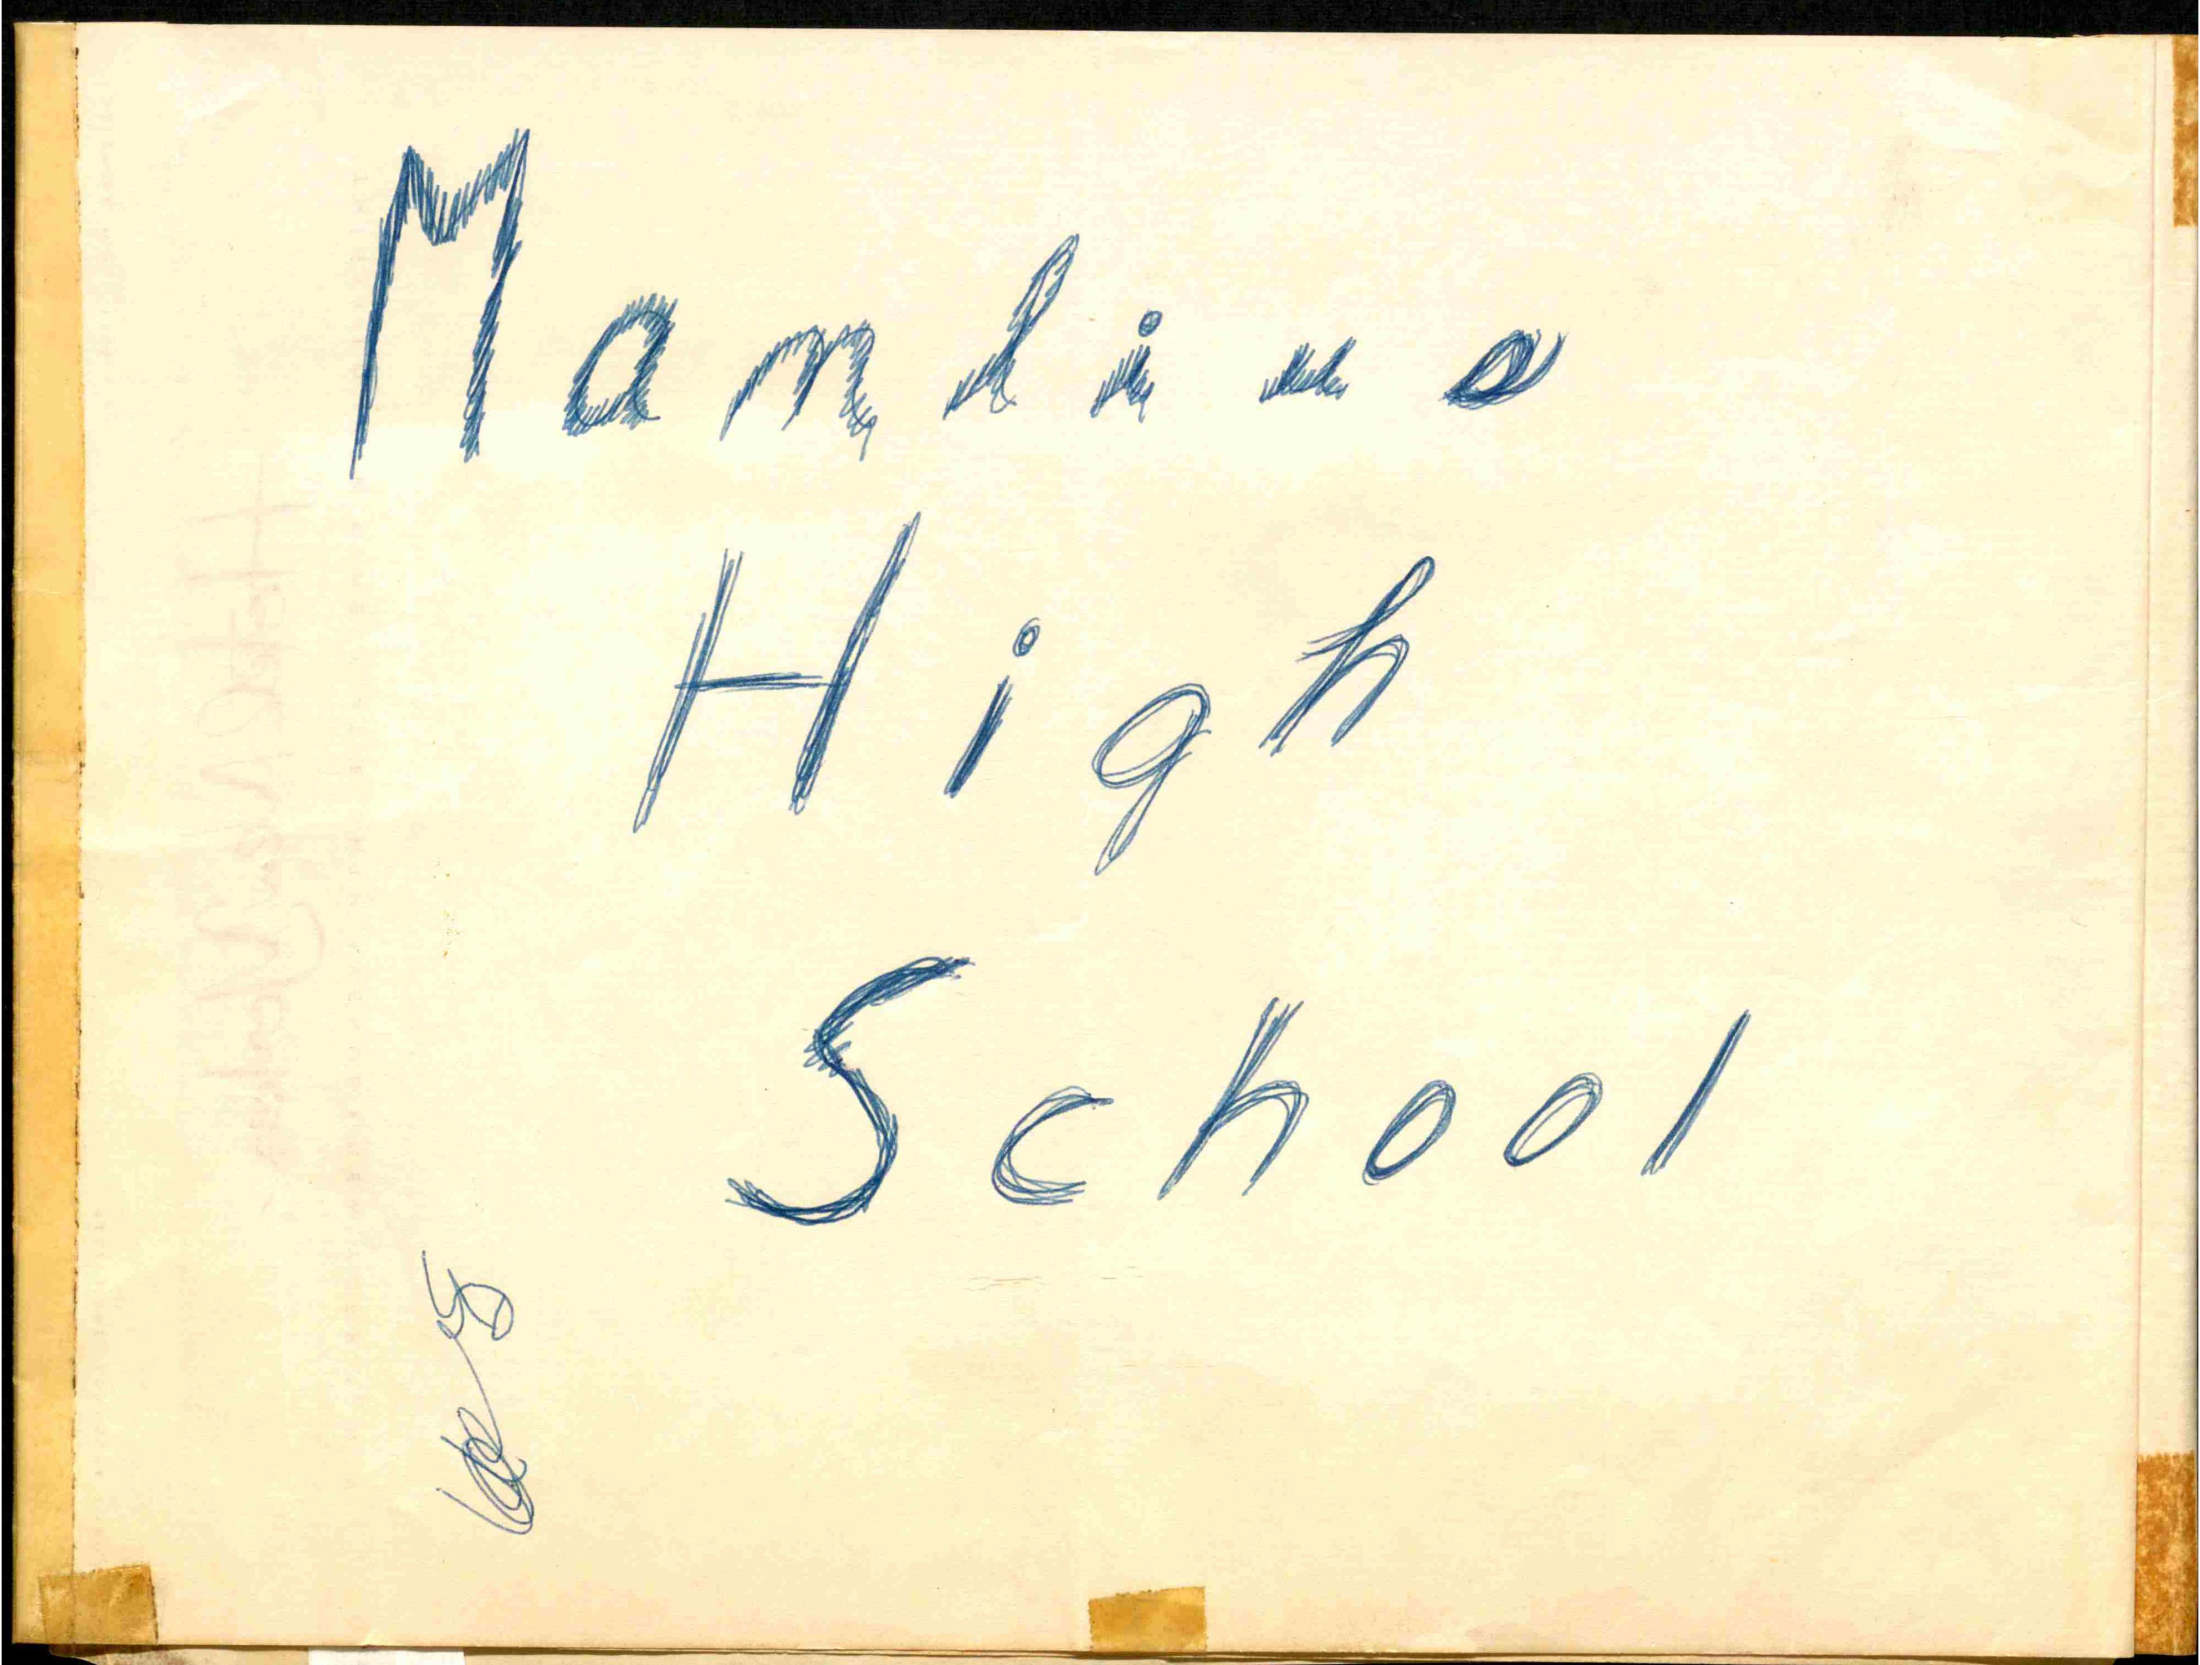 Manlius
High
School